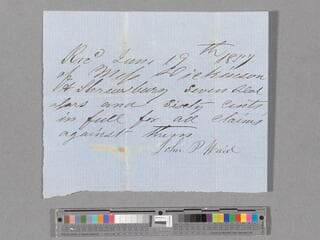 Rec'd Jan, 19th 1877
of Mess Dickinson
& Shrewsbury Seven Dol
lars and sixty cents
in full for all claims
against them
John P Ward